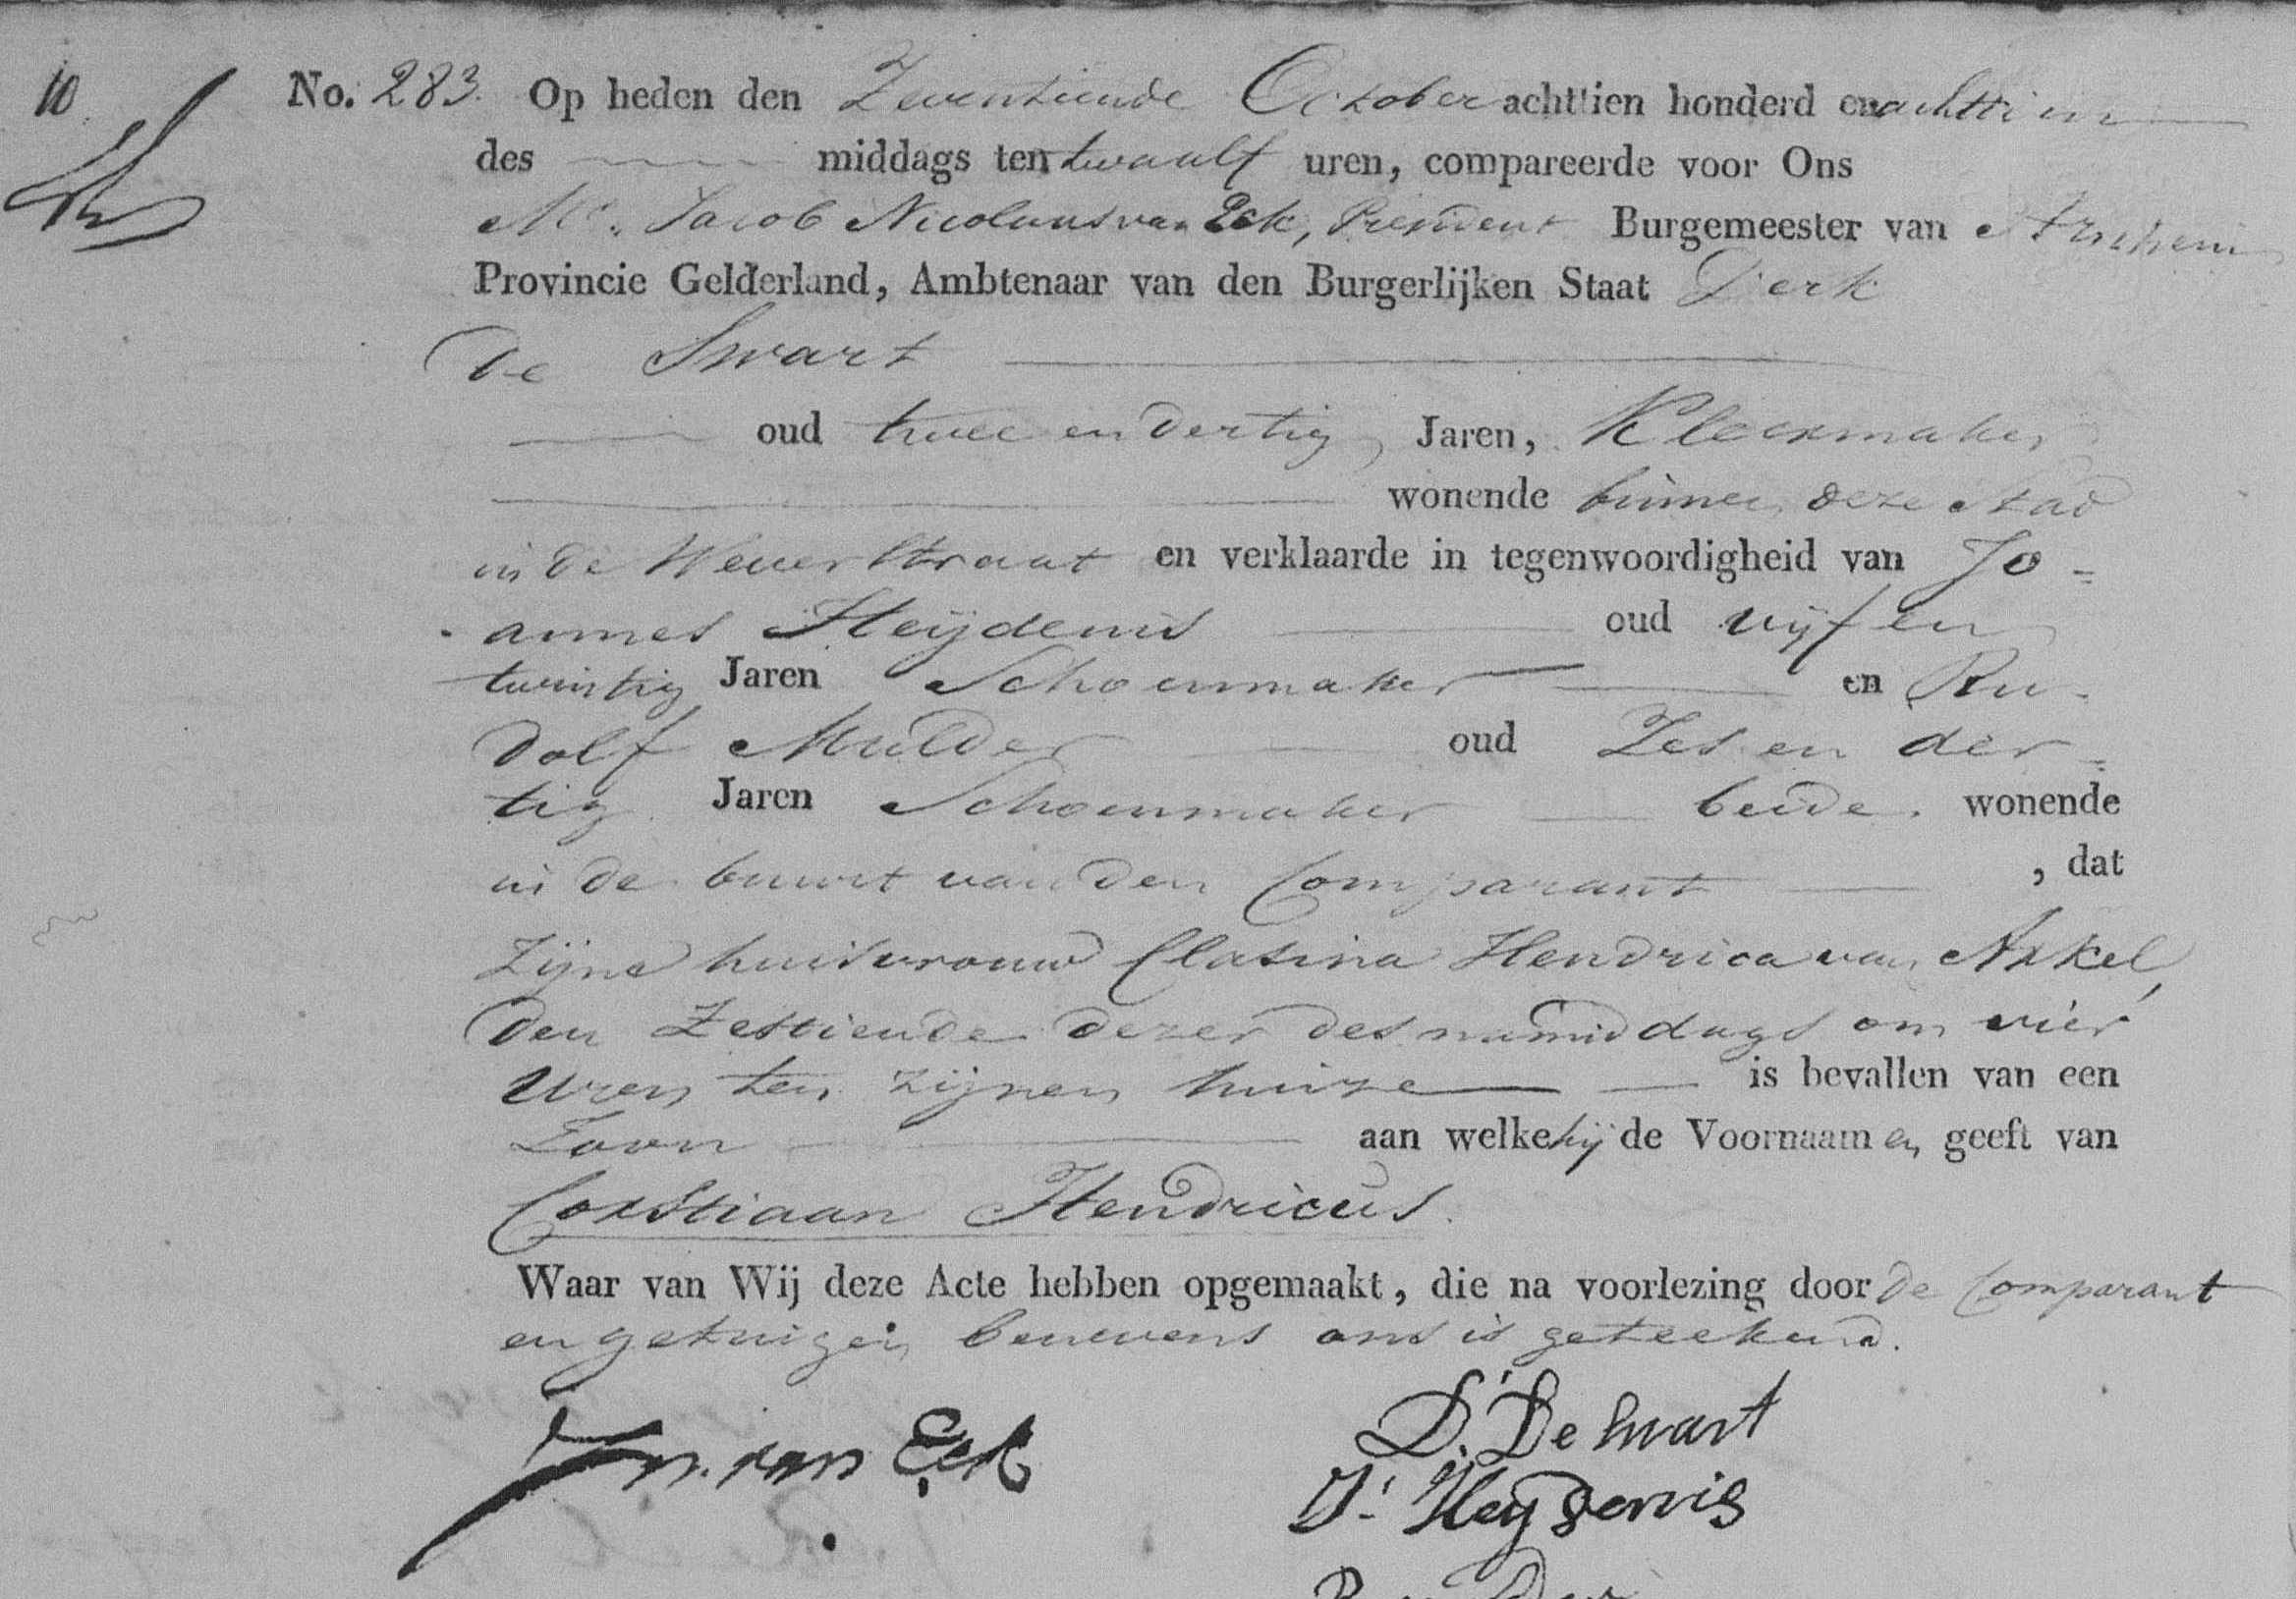 10
No. 283. Op heden den Zeventiende October achttien honderd en achttien
des middags ten twaalf uren, compareerde voor Ons
Mr. Jacob Nicolaas van Eck, President Burgemeester van Arnhem
Provincie Gelderland, Ambtenaar van den Burgerlijken Staat Derk
De Swart
oud twee en dertig Jaren, Kleermaker
wonende binnen deze Stad
in de Weverstraat en verklaarde in tegenwoordigheid van Jo=
annes Heijdenis oud vijf en
twintig Jaren Schoenmaker en Ru-
dolf Mulder oud Zes en der=
tig Jaren Schoenmaker beide wonende
in de buurt van den Comparant , dat
Zijne huisvrouw Clasina Hendrica van Arkel,
den Zestiende dezer des namiddags om vier
uren ten zijnen huize is bevallen van een
Zoon aan welke hij de Voornaamen geeft van
Corstiaan Hendricus.
Waar van Wij deze Acte hebben opgemaakt, die na voorlezing door de Comparant
en getuigen benevens ons is geteekend.
D. De Swart
J.n. van Eck
J. Heydenis